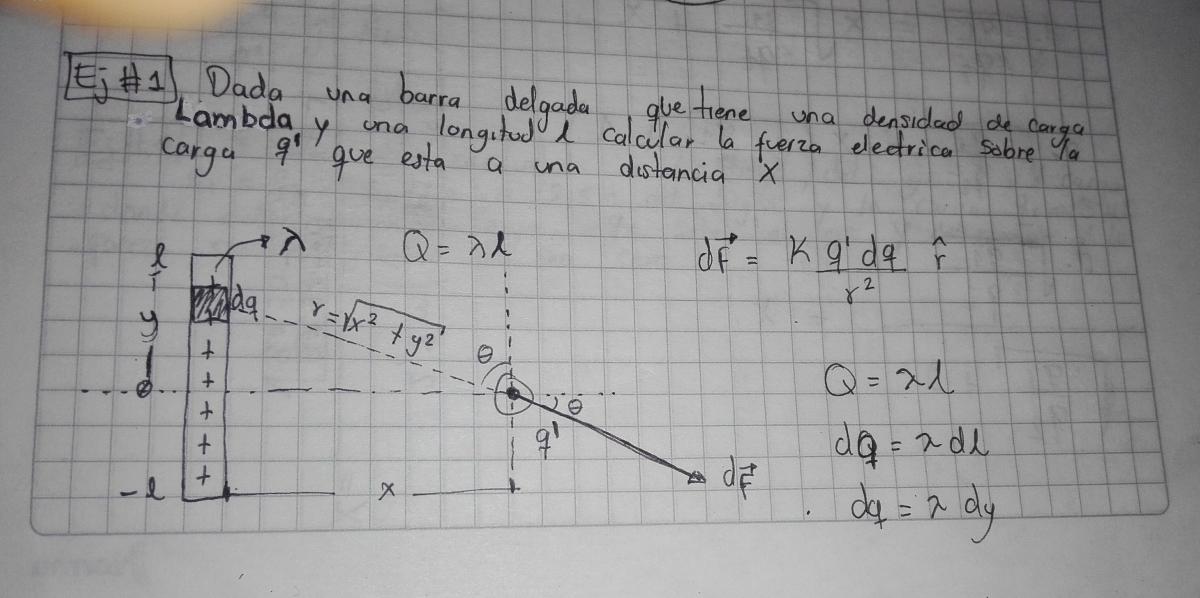 Ej #1 Dada una barra delgada que tiene una densidad de carga
Lambda y una longitud l calcular la fuerza electrica sobre la
carga q' que esta a una distancia x
l
λ
Q = λl
dF⃗ = K q' dq / r² r̂
dq
r = √x² + y²
y
θ
Q = λl
θ
q'
dq = λ dl
dF⃗
-l
x
dq = λ dy